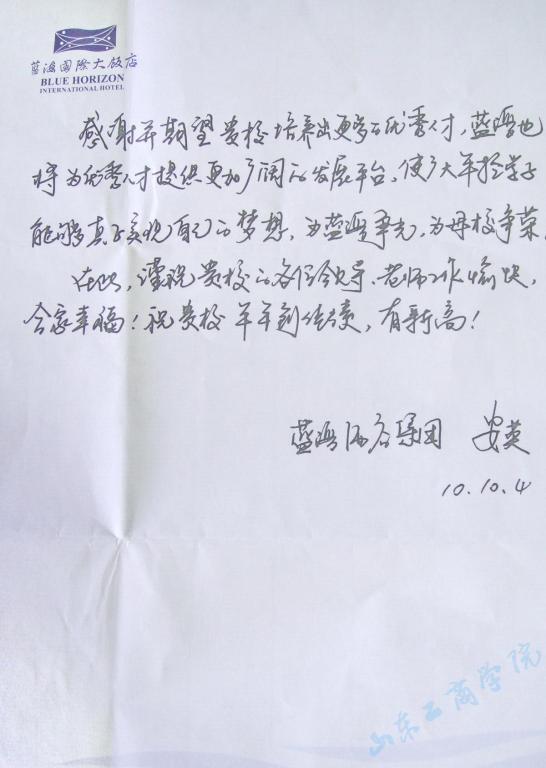 蓝海国际大饭店
BLUE HORIZON
INTERNATIONAL HOTEL
感谢并期望贵校培养出更多的优秀人才,蓝海也
将为优秀人才提供更加广阔的发展平台,使广大年轻学子
能够真正实现自己的梦想,为蓝海争光,为母校争荣。
在此,谨祝贵校的各位领导、老师工作愉快,
合家幸福!祝贵校年年创佳绩,有新高!
蓝海酒店集团 安英
10.10.4
山东工商学院